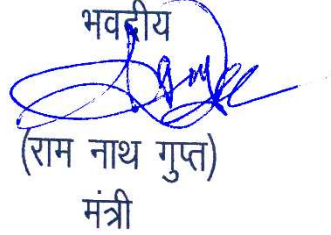 भवदीय
(राम नाथ गुप्त)
मंत्री